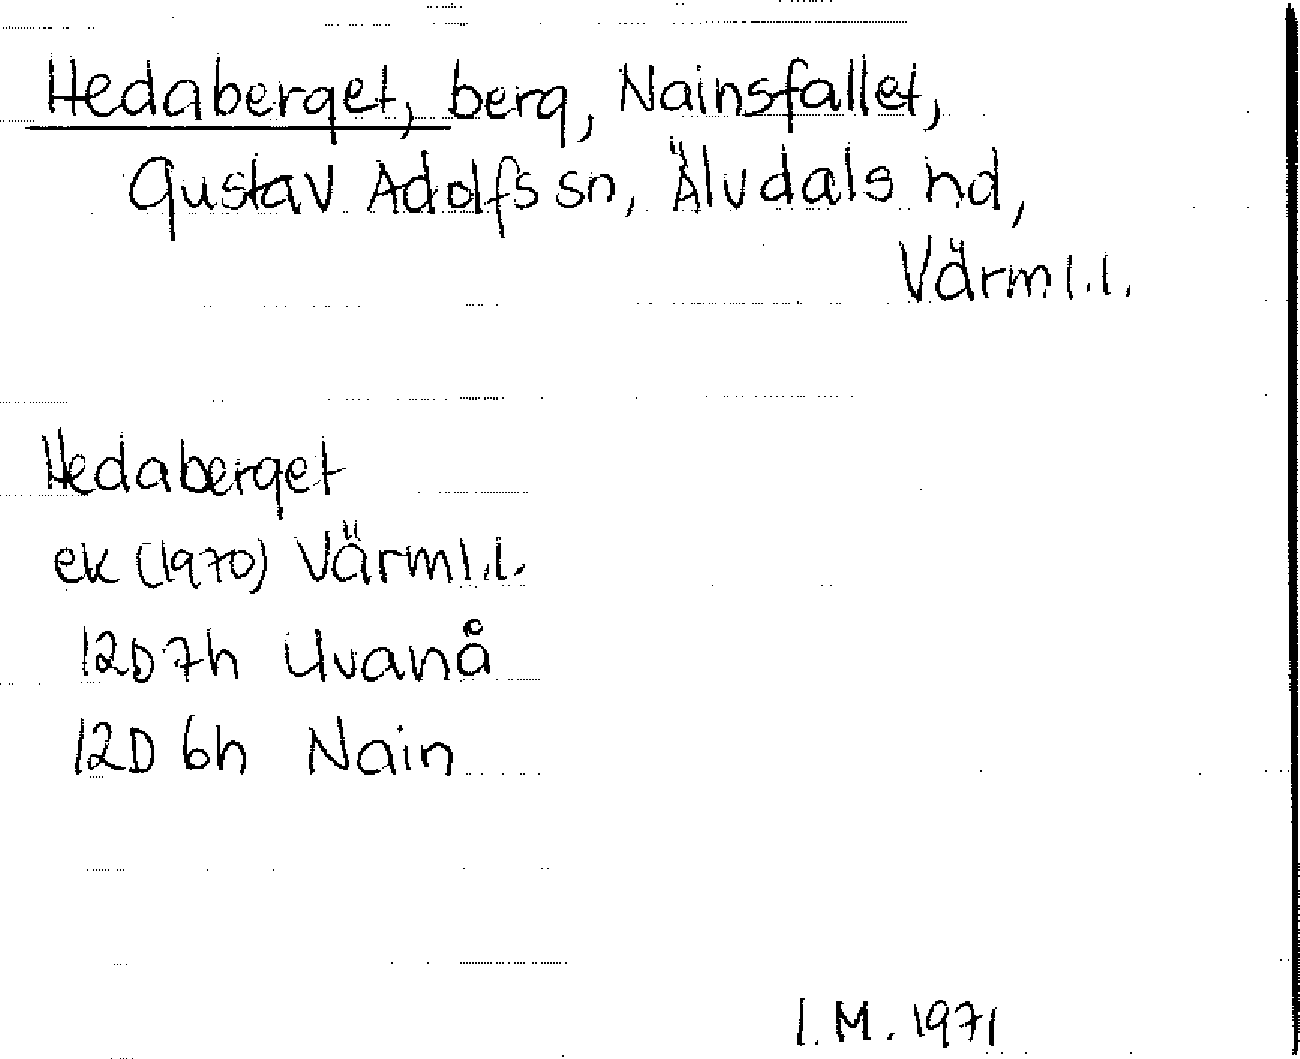 Hedaberget, berg, Nainsfallet,
Gustav Adolfs sn, Älvdals hd,
Värml.l.
Hedaberget
ek (1970) Värml.l.
12D 7h Uvanå
12D 6h Nain
I.M. 1971